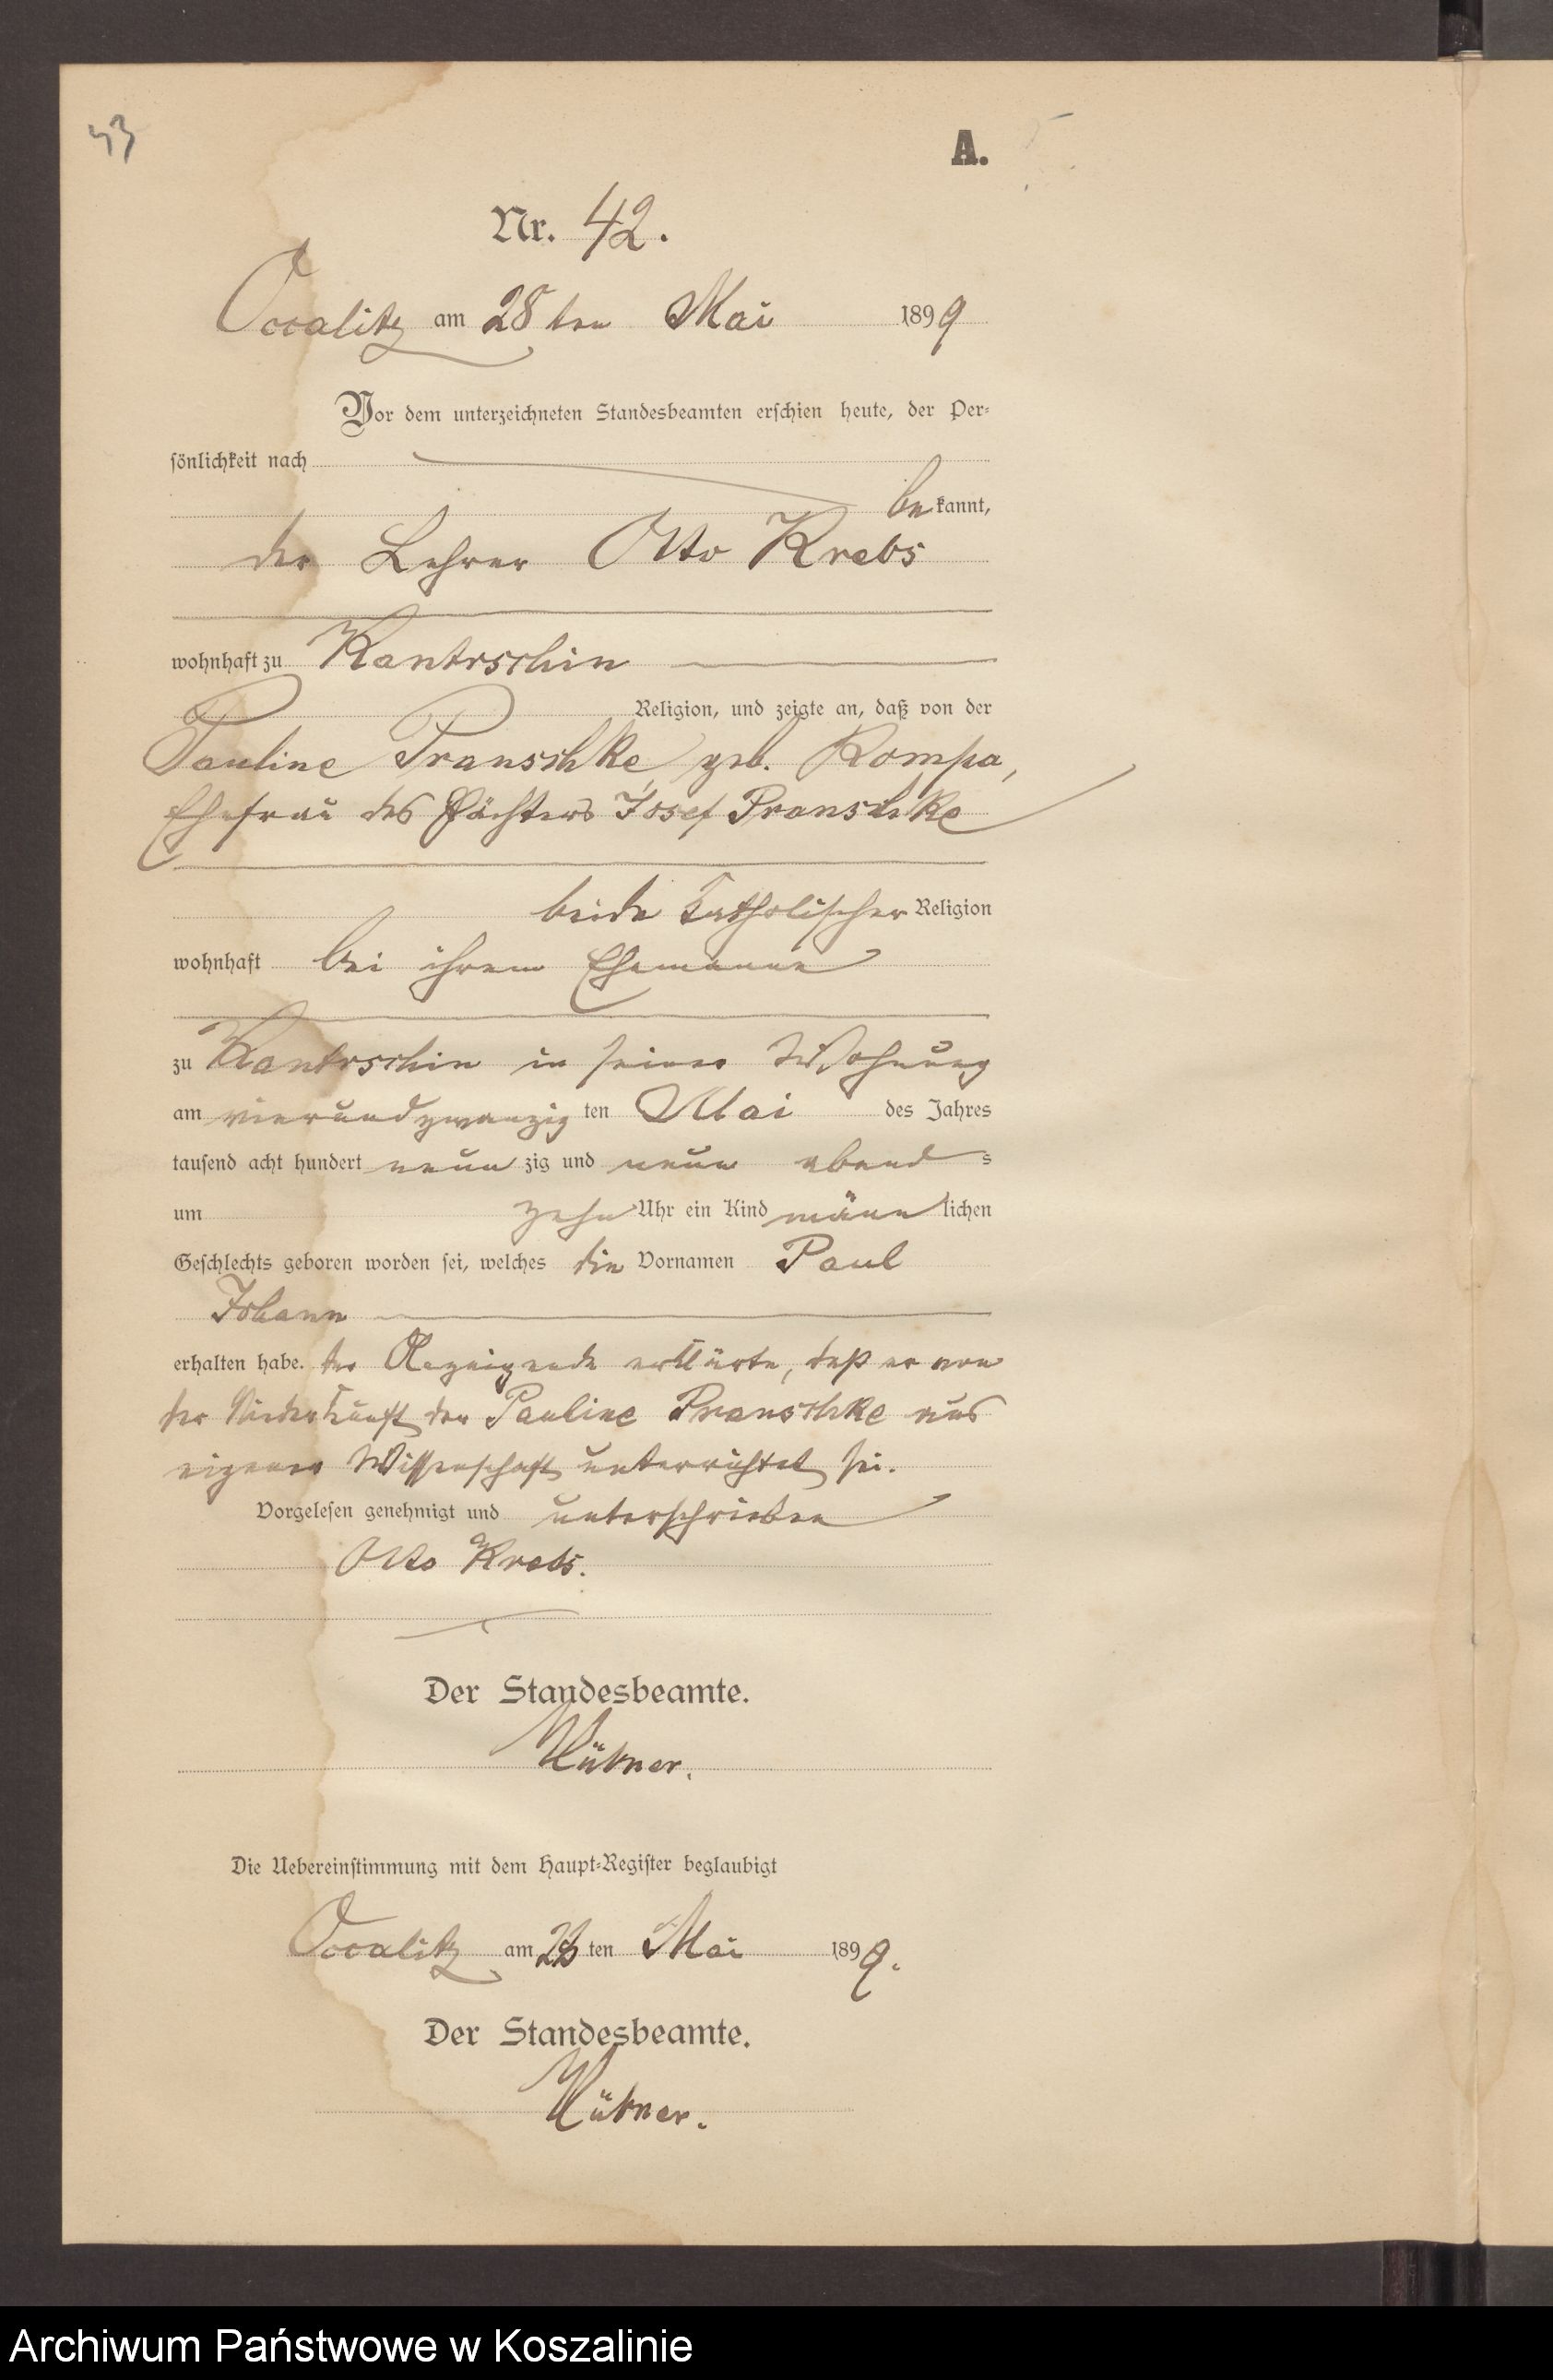 43
A.
Nr. 42.
Occalitz am 28ten Mai 1899
Vor dem unterzeichneten Standesbeamten erschien heute, der Per-
sönlichkeit nach
bekannt,
der Lehrer Otto Krebs
wohnhaft zu Kantrschin
Religion, und zeigte an, daß von der
Pauline Pranschke geb. Kompa,
Ehefrau des Pächters Josef Pranschke
beide katholischer Religion
wohnhaft bei ihrem Ehemanne
zu Kantrschin in seiner Wohnung
am vierundzwanzigten Mai des Jahres
tausend acht hundert neunzig und neun abends
um zehn Uhr ein Kind männlichen
Geschlechts geboren worden sei, welches die Vornamen Paul
Johann
erhalten habe. der Anzeigende erklärte, daß er von
der Niederkunft der Pauline Pranschke aus
eigener Wissenschaft unterrichtet sei.
Vorgelesen genehmigt und unterschrieben
Otto Krebs.
Der Standesbeamte.
Die Uebereinstimmung mit dem Haupt-Register beglaubigt
Occalitz am ten Mai 1899.
Der Standesbeamte.
Archiwum Państwowe w Koszalinie